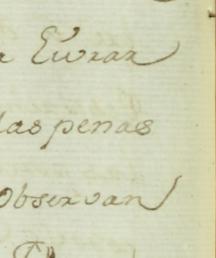 a Eivrar
las penas
Observan